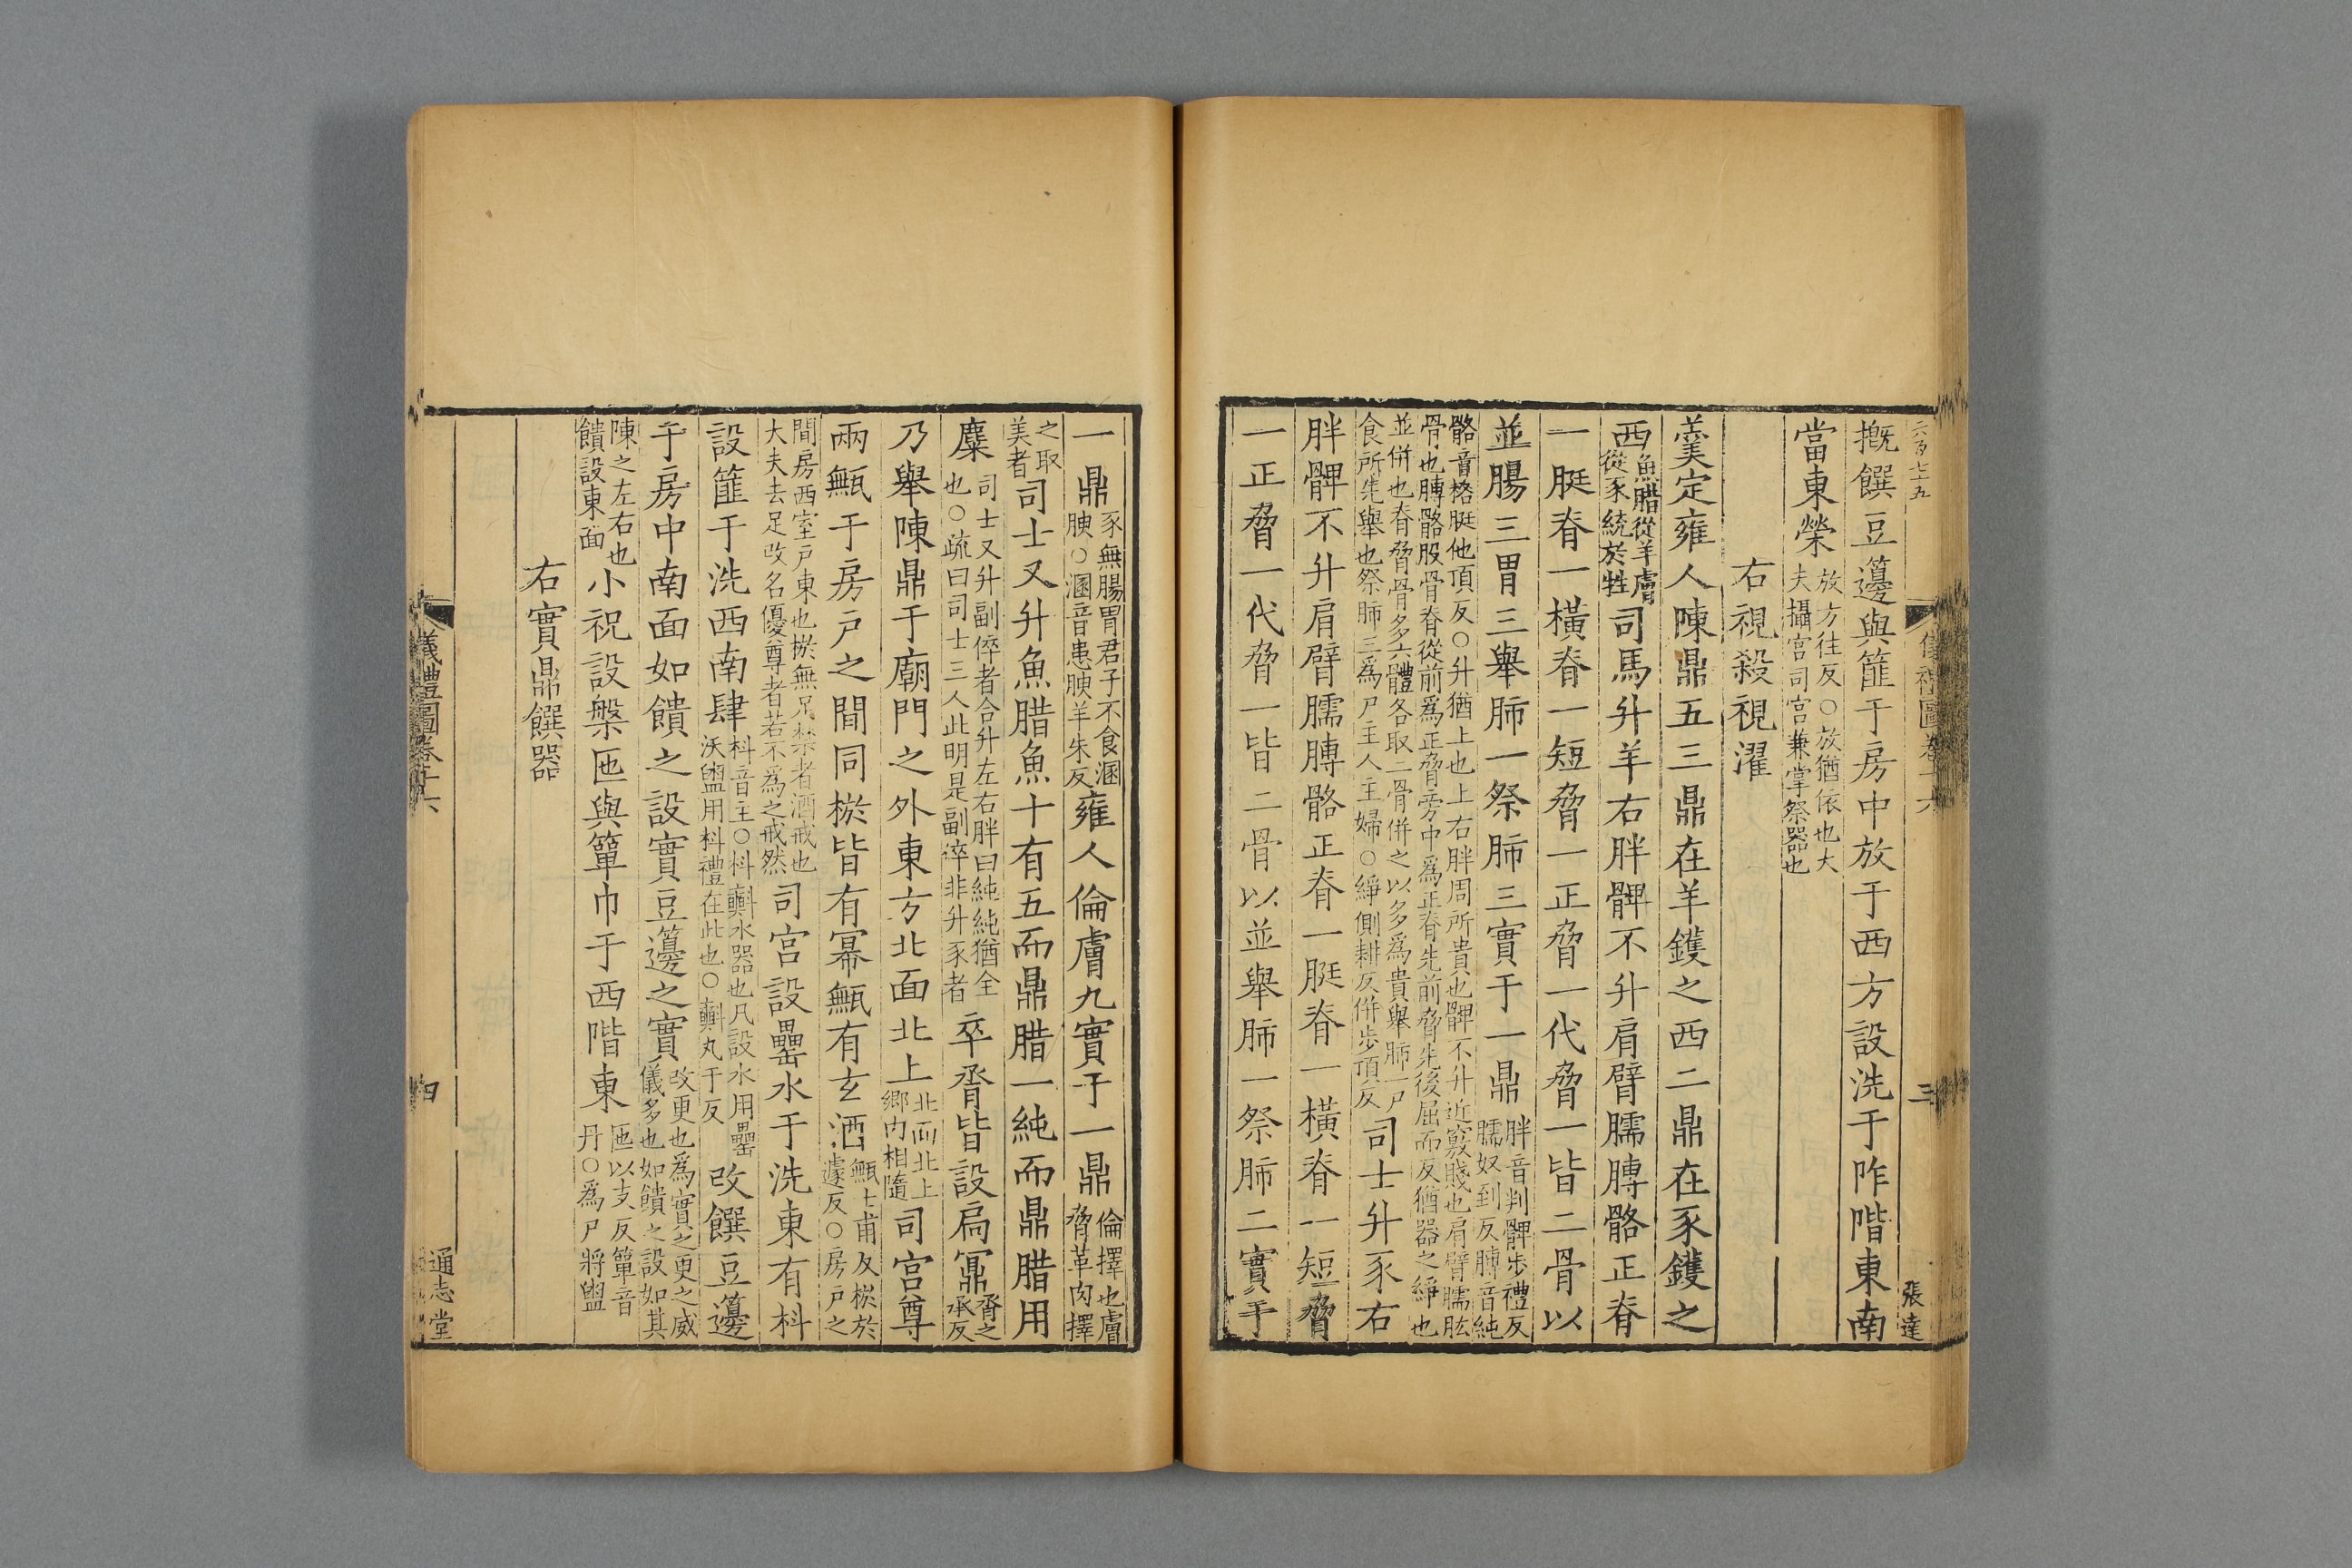 六百七十五
儀禮圖卷十六
三
張達
摡饌豆籩與篚于房中放于西方設洗于阼階東南
當東榮放方往反○放猶依也大夫攝官司宮兼掌祭器也
右視殺視濯
羹定雍人陳鼎五三鼎在羊鑊之西二鼎在豕鑊之
西魚腊從羊膚從豕統於牲司馬升羊右胖髀不升肩臂臑膊骼正脊
一脡脊一橫脊一短脅一正脅一代脅一皆二骨以
並腸三胃三舉肺一祭肺三實于一鼎胖音判髀步禮反臑奴到反膊音純
骼音格脡他頂反○升猶上也上右胖周所貴也髀不升近竅賤也肩臂臑肱骨也膊骼股骨脊從前爲正脅旁中爲正脊先前脅先後屈而反猶器之綪也
並併也脊脅骨多六體各取二骨併之以多爲貴舉肺一尸食所先舉也祭肺三爲尸主人主婦○綪側耕反併步頂反司士升豕右
胖髀不升肩臂臑膊骼正脊一脡脊一橫脊一短脅
一正脅一代脅一皆二骨以並舉肺一祭肺二實于
一鼎豕無腸胃君子不食溷腴○溷音患腴羊朱反雍人倫膚九實于一鼎倫擇也膚脅革肉擇
之取美者司士又升魚腊魚十有五而鼎腊一純而鼎腊用
麋司士又升副倅者合升左右胖曰純純猶全也○疏曰司士三人此明是副倅非升豕者卒脀皆設扃鼏脀之承反
乃舉陳鼎于廟門之外東方北面北上北面北上鄉內相隨司宮尊
兩甒于房戶之間同棜皆有冪甒有玄酒甒士甫反棜於遽反○房戶之
間房西室戶東也棜無足禁者酒戒也大夫去足改名優尊者若不爲之戒然司宮設罍水于洗東有枓
設篚于洗西南肆枓音主○枓㪺水器也凡設水用罍沃盥用枓禮在此也○㪺丸于反改饌豆籩
于房中南面如饋之設實豆籩之實改更也爲實之更之威儀多也如饋之設如其
陳之左右也饋設東面小祝設槃匜與簞巾于西階東匜以支反簞音丹○爲尸將盥
右實鼎饌器
儀禮圖卷十六
四
通志堂